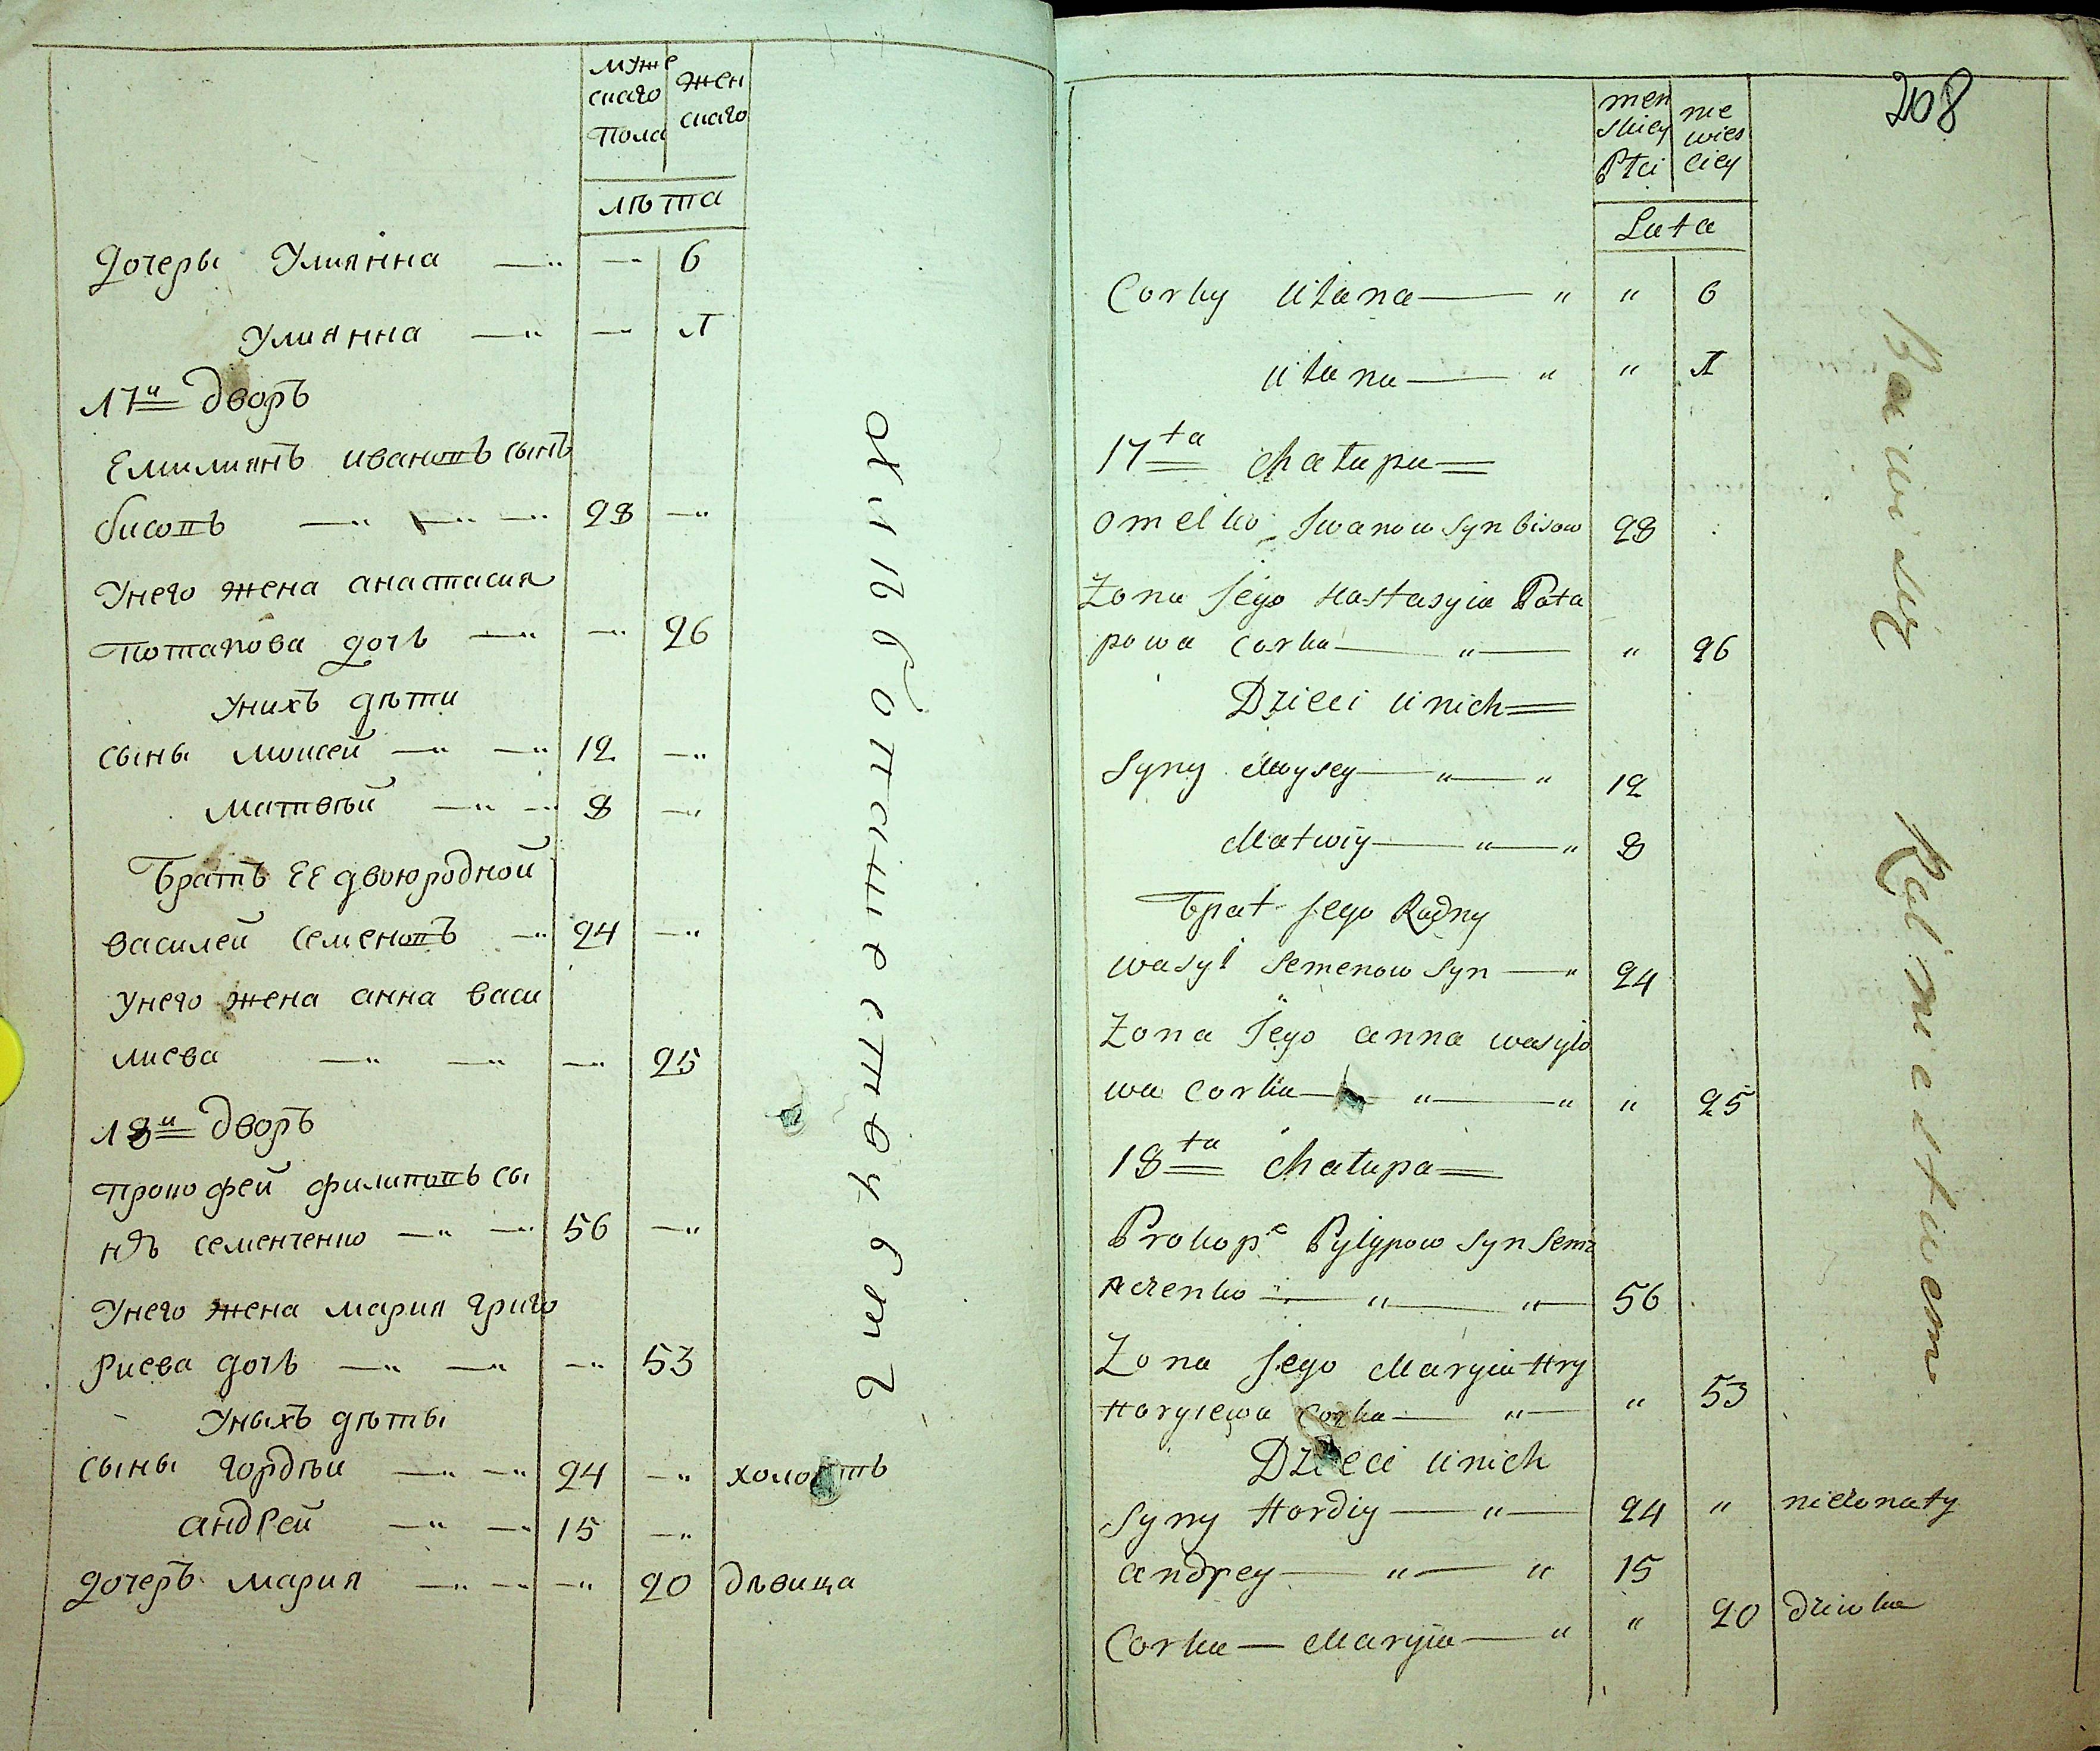 муже
скаго
пола
жен
скаго
лѣта
дочеры Улиянна —„ —„ 6
Улиянна —„ —„ 1
17й дворъ
Емилиянъ ивановъ сынъ
бисовъ —„ —„ —„ 28 —„
Унего жена анастасия
потапова дочь —„ —„ 26
Унихъ дѣти
сыны моисей —„ —„ 12 —„
матвѣй —„ —„ 8 —„
братъ ЕЕ двоюродной
василей семеновъ —„ 24 —„
Унего жена анна васи
лиева —„ —„ —„ 25
18й дворъ
прокофей филиповъ сы
нъ семенченко —„ —„ 56 —„
Унего жена мария григо
риева дочь —„ —„ —„ 53
Уныхъ дѣты
сыны гордѣи —„ —„ 24 —„ холостъ
андрей —„ —„ 15 —„
дочеръ мария —„ —„ —„ 20 дѣвица
208
men
skiey
Płci
nie
wies
ciey
Lata
Corky Ulana — „ „ 6
Ulana — „ „ 1
17ta Chałupa
Omelko Iwanow Syn bisow 28
Żona Jego Nastasyia Pota
powa Corka — „ — „ 26
Dzieci u nich
Syny Moysey — „ — „ 12
Matwiy — „ — „ 8
Брat Jego Rodny
wasyl Semenow Syn — „ 24
Żona Jego anna wasylo
wa Corka — „ — „ „ 25
18ta Chałupa
Prokop Pyłypow Syn Seme
nczenko — „ — „ — 56
Żona Jego Maryia Hry
Horyiewa Corka — „ — „ 53
Dzieci u nich
Syny Hordiy — „ — 24 „ nieżonaty
andrey — „ — „ 15
Corka — Maryia — „ „ 20 dziwka